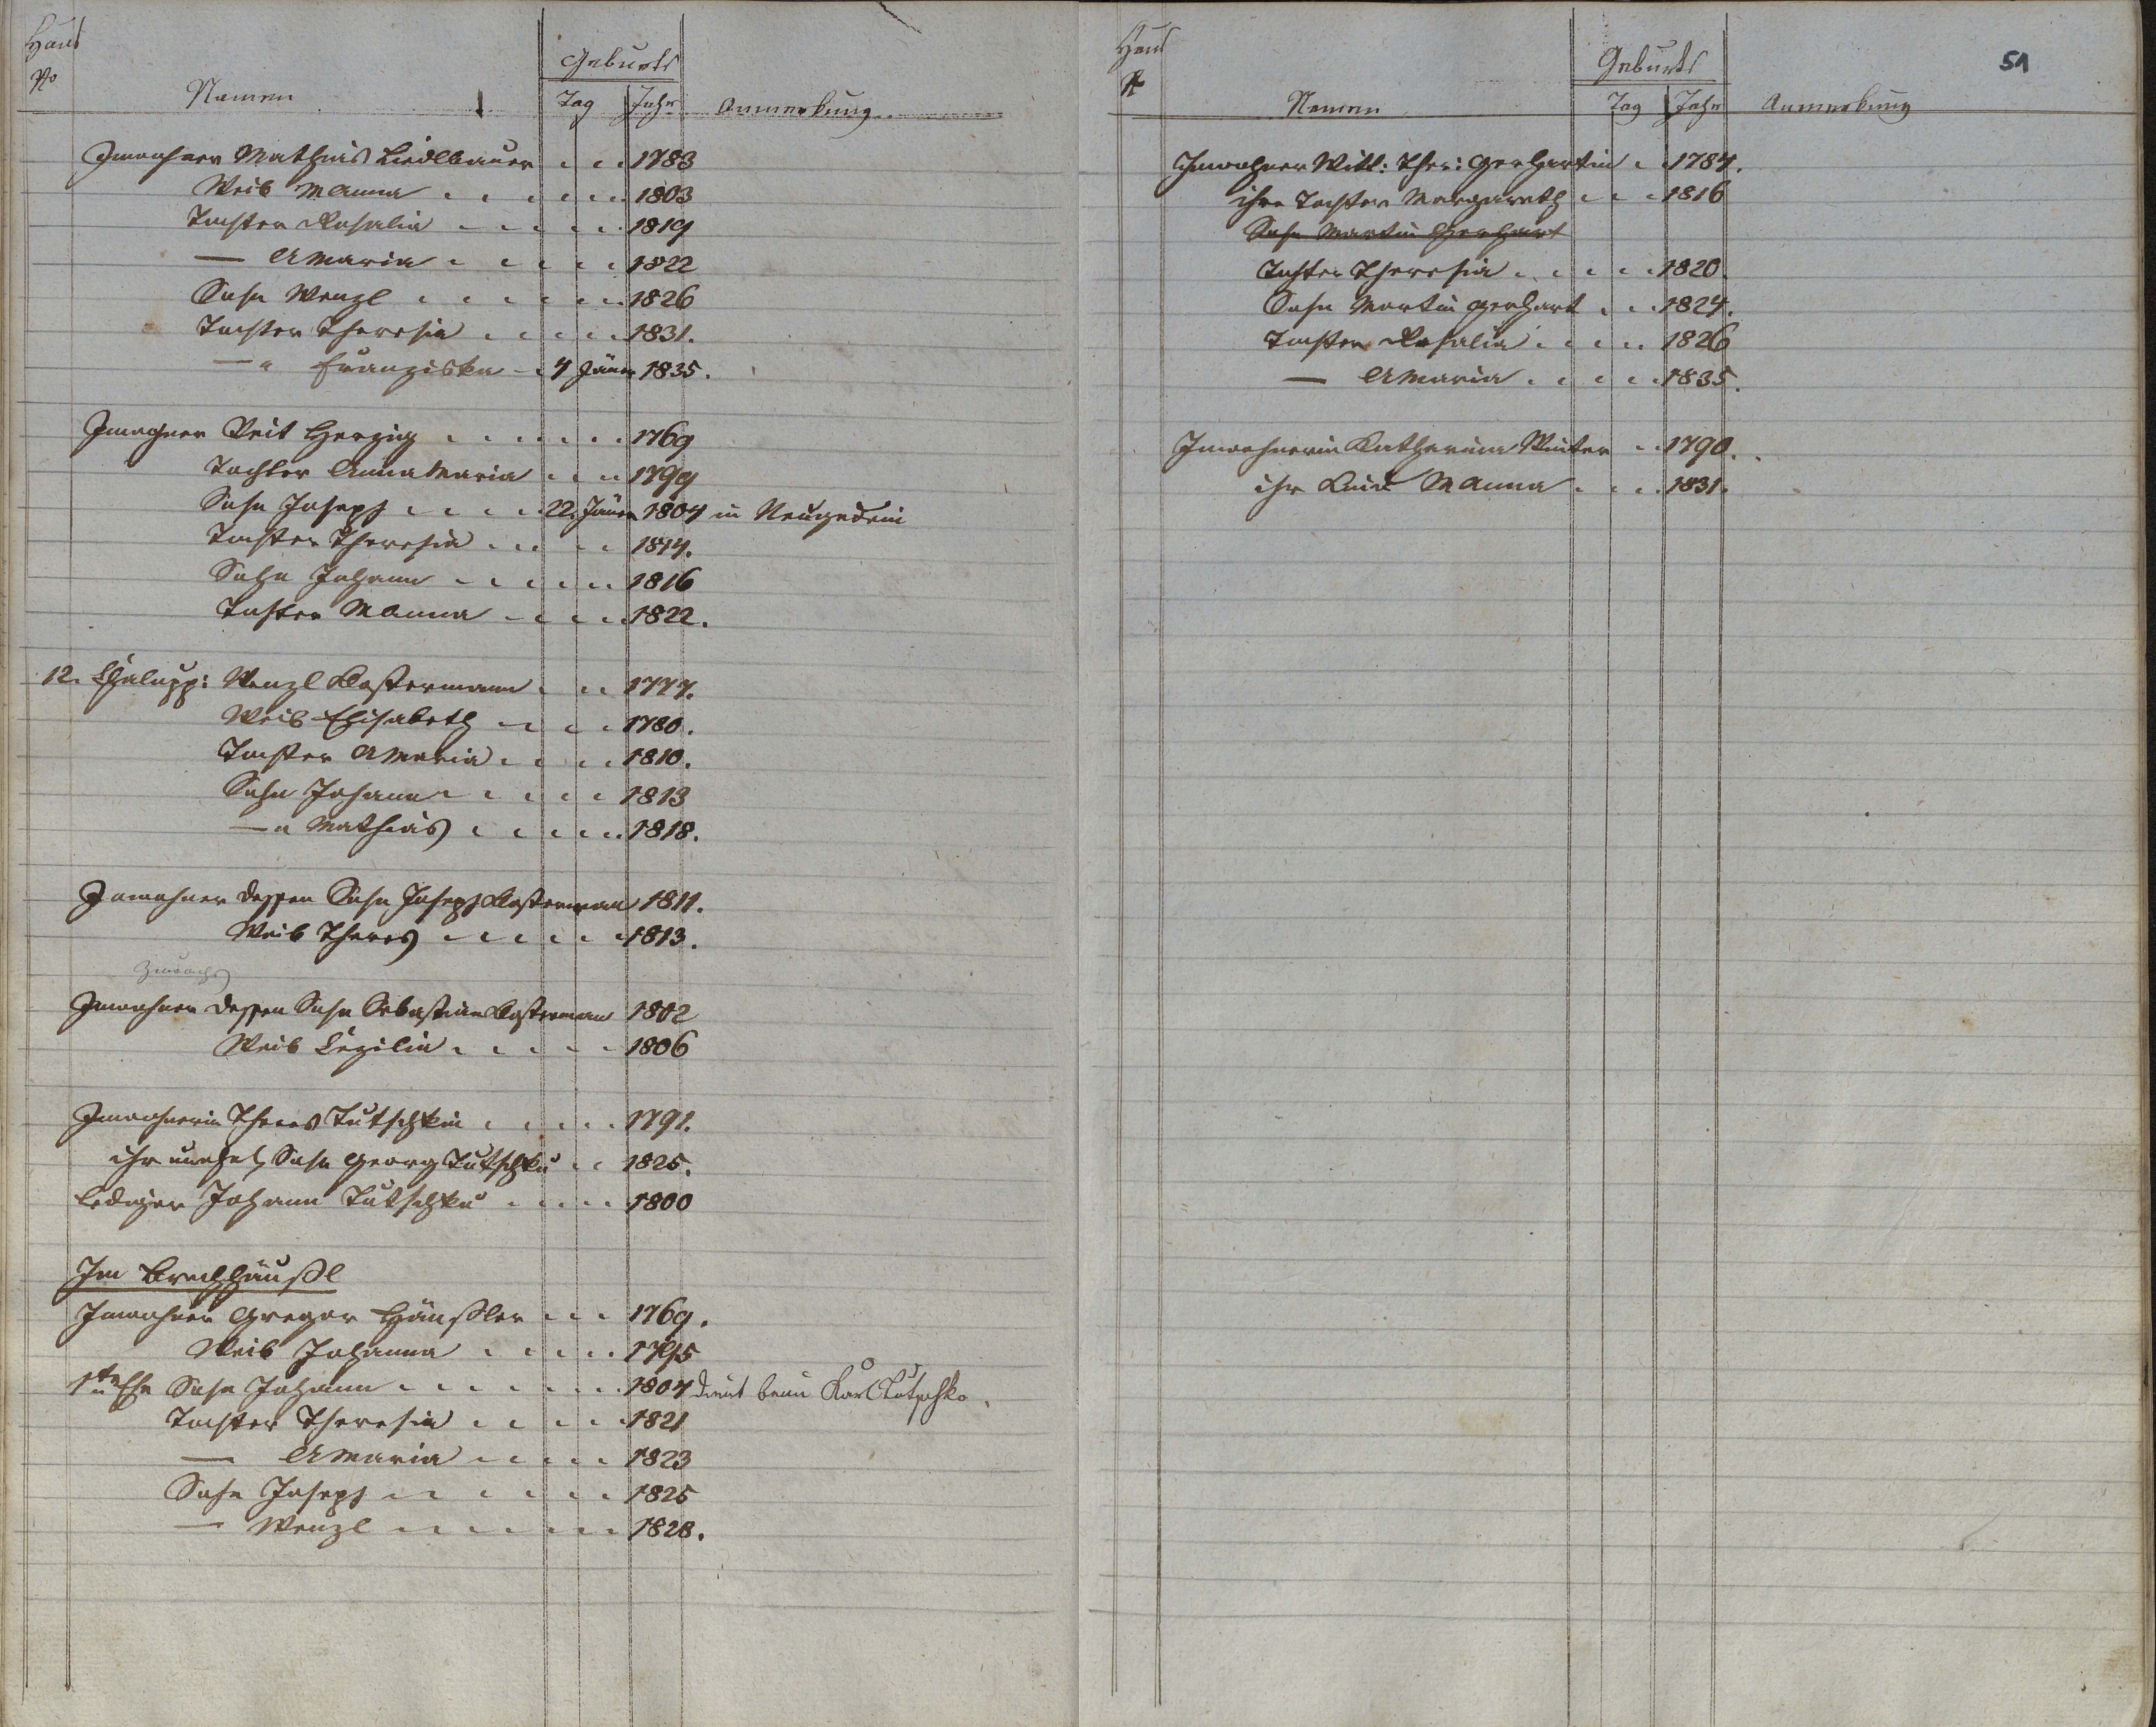 Haus
No
Namen
Geburts
Tag Jahr
Anmerkung
Inwohner Mathias Liedlbauer 1783
Weib MAnna 1803
Tochter Rosalia 1819
— AMaria 1822
Sohn Wenzl 1826
Tochter Theresia 1831.
— " Franziska 4 Jäner 1835.
Inwohner Veit Herzig 1769
Tochter Anna Maria 1799
Sohn Joseph 22. Jäner 1804 in Neugedein
Tochter Theresia 1814.
Sohn Johann 1816
Tochter MAnna 1822.
12. Chalupp: Wenzl Klostermann 1777.
Weib Elisabeth 1780.
Tochter AMaria 1810.
Sohn Johann 1813
— " Mathias 1818.
Inwohner dessen Sohn Joseph Klosterman 1811.
Weib Theres 1813.
Inwohner dessen Sohn Sebastian Klosterman 1802
Weib Cezilia 1806
Inwohnerin Theres Tutschkin 1791.
ihr unehel Sohn Georg Tutschku 1825.
lediger Johann Tutschku 1800
Im Brechhäußl
Inwohner Gregor Häußler 1769.
Weib Johanna 1795
1ter Ehe Sohn Johann 1804 dient beim Karl Tutschko.
Tochter Theresia 1821
— AMaria 1823
Sohn Joseph 1825
— Wenzl 1828.
Haus
N
Namen
Geburts
Tag Jahr
Anmerkung
51
Inwohner Witt: Ther: Gerhartin 1784.
ihre Tochter Margareth 1816
Sohn Martin Gerhart
Tochter Theresia 1820.
Sohn Martin Gerhart 1824.
Tochter Rosalia 1826
— AMaria 1835.
Inwohnerin Katharina Winter 1790.
ihr Kind MAnna 1831.